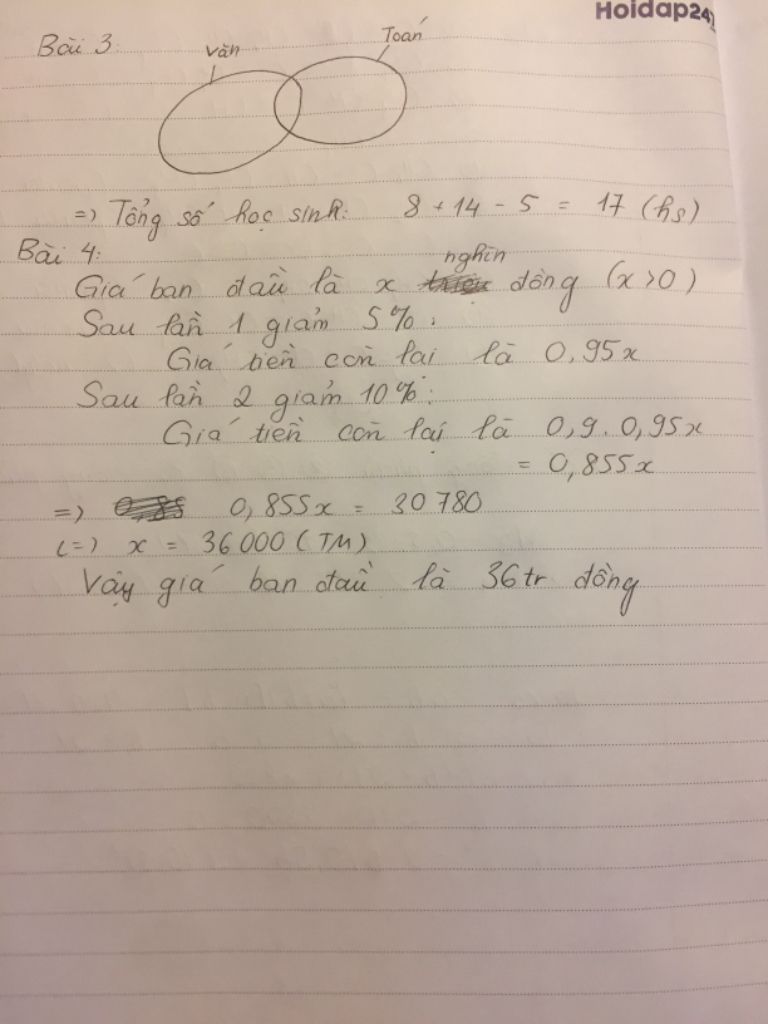 Hoidap247
Bài 3:
Văn
Toán
=> Tổng số học sinh: 8 + 14 - 5 = 17 (hs)
Bài 4:
nghìn
Giá ban đầu là x đồng (x > 0)
Sau lần 1 giảm 5%:
Giá tiền còn lại là 0,95x
Sau lần 2 giảm 10%:
Giá tiền còn lại là 0,9.0,95x
= 0,855x
=> 0,855x = 30780
<=> x = 36000 (TM)
Vậy giá ban đầu là 36tr đồng